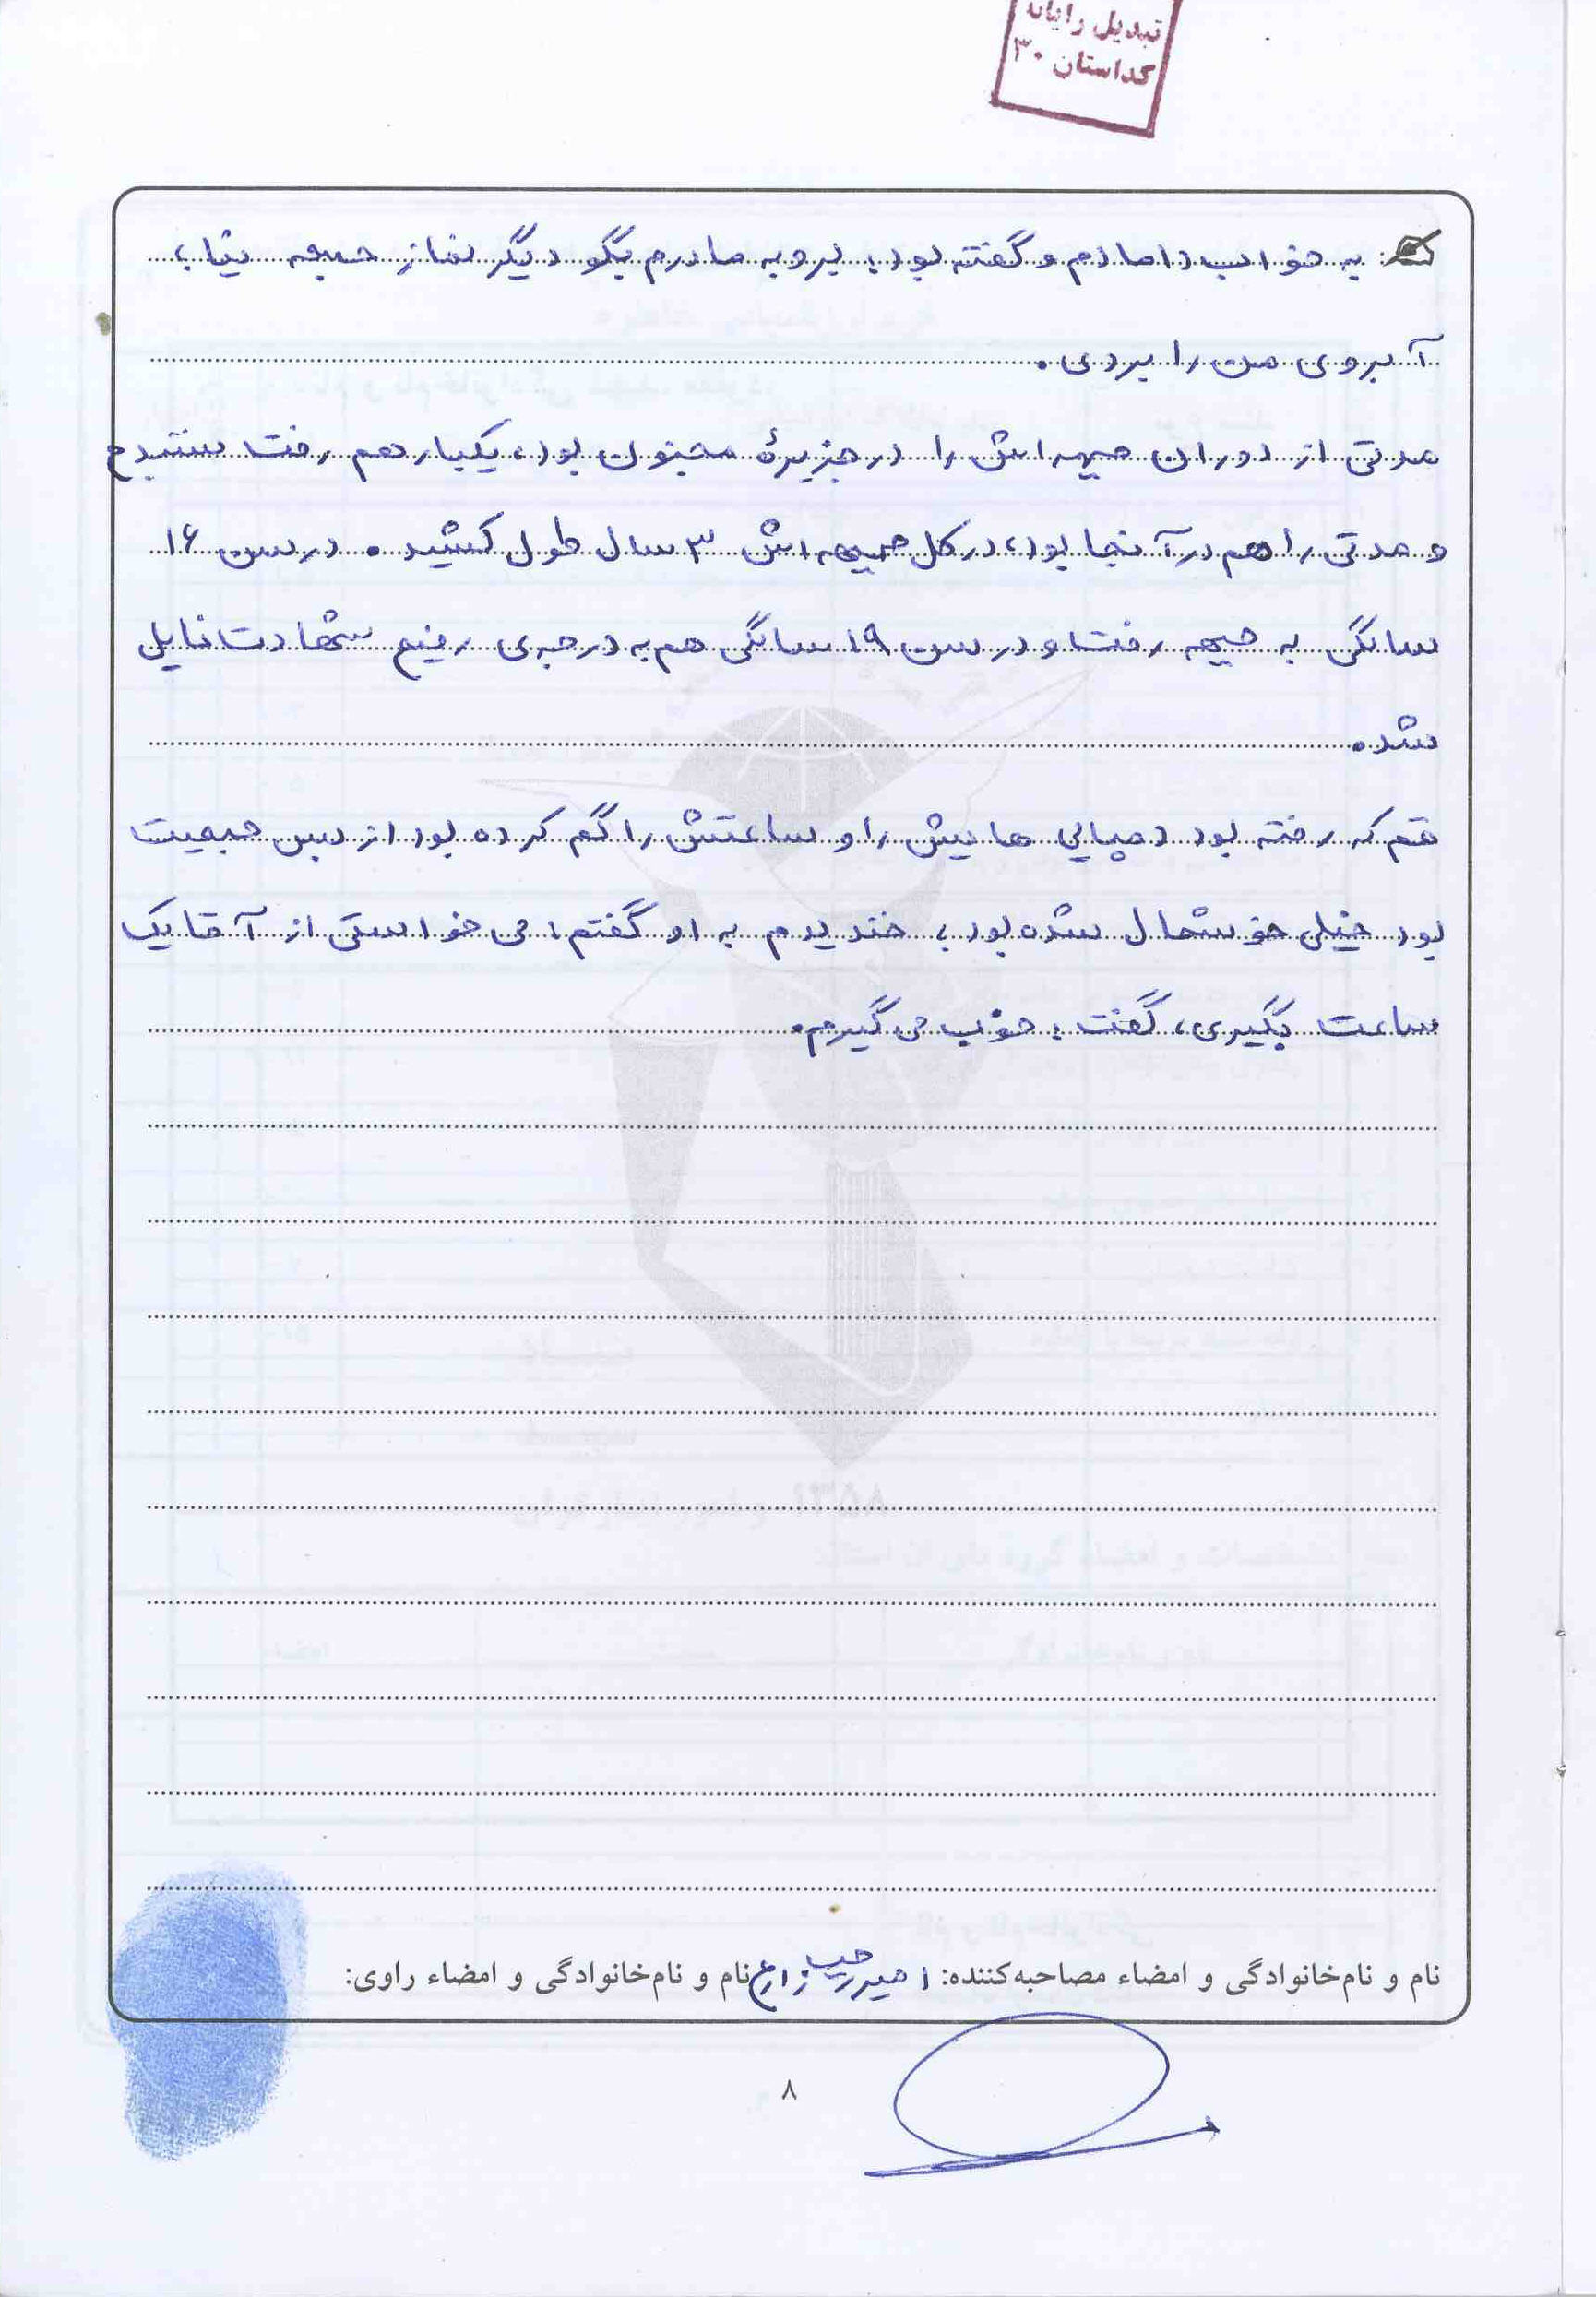 تبدیل رایانه
کداستان ۳۰
به خواب دامادم و گفته بود: برو به مادرم بگو دیگر نماز جمعه نیا،
آبروی من را بردی.
مدتی از دوران جبهه اش را در جزیرهٔ مجنون بود، یکبار هم رفت سنندج
و مدتی را هم در آنجا بود، در کل جبهه اش ۳ سال طول کشید. در سن ۱۶
سالگی به جبهه رفت و در سن ۱۹ سالگی هم به درجه ی رفیع شهادت نایل
شد.
قم که رفته بود دمپایی هایش را و ساعتش را گم کرده بود از بس جمعیت
بود خیلی خوشحال شده بود، خندیدم به او گفتم: می خواستی از آقا یک
ساعت بگیری، گفت: خوب می گیرم.
نام و نام‌خانوادگی و امضاء مصاحبه‌کننده: نام و نام‌خانوادگی و امضاء راوی:
۸